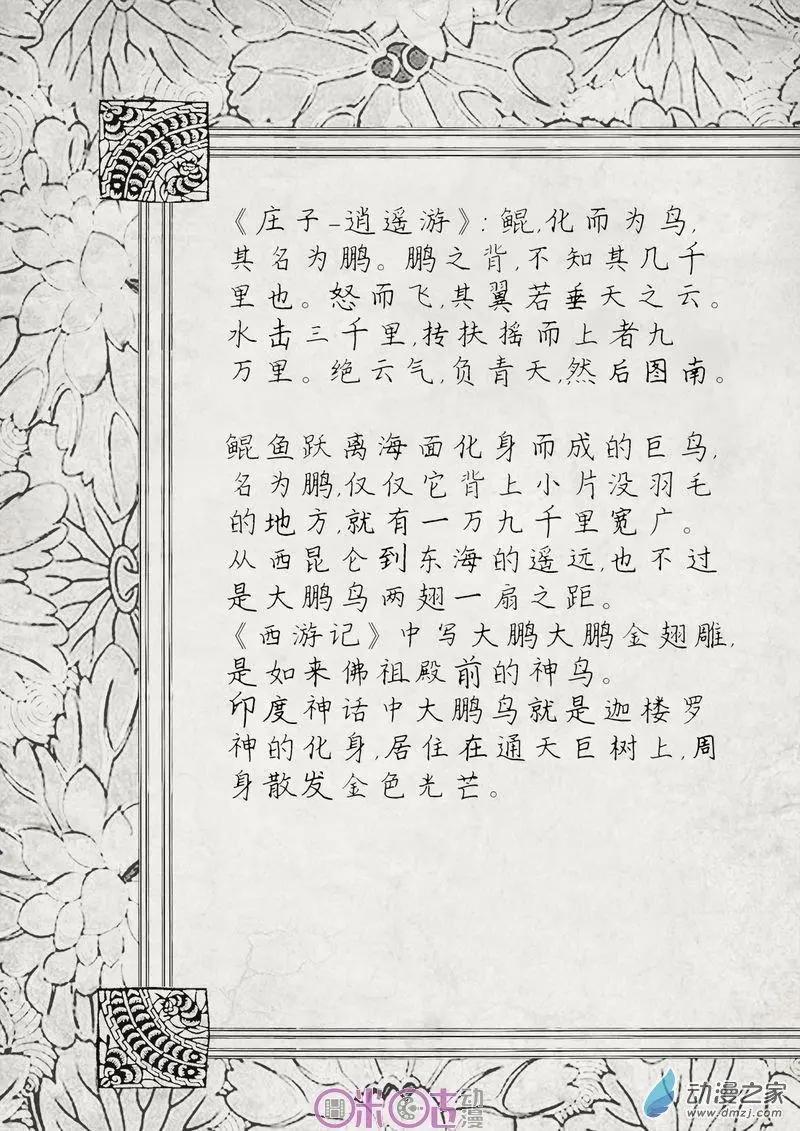 《庄子-逍遥游》:鲲,化而为鸟,
其名为鹏。鹏之背,不知其几千
里也。怒而飞,其翼若垂天之云。
水击三千里,抟扶摇而上者九
万里。绝云气,负青天,然后图南。
鲲鱼跃离海面化身而成的巨鸟,
名为鹏,仅仅它背上小片没羽毛
的地方,就有一万九千里宽广。
从西昆仑到东海的遥远,也不过
是大鹏鸟两翅一扇之距。
《西游记》中写大鹏大鹏金翅雕,
是如来佛祖殿前的神鸟。
印度神话中大鹏鸟就是迦楼罗
神的化身,居住在通天巨树上,周
身散发金色光芒。
咪咕动漫
动漫之家
www.dmzj.com